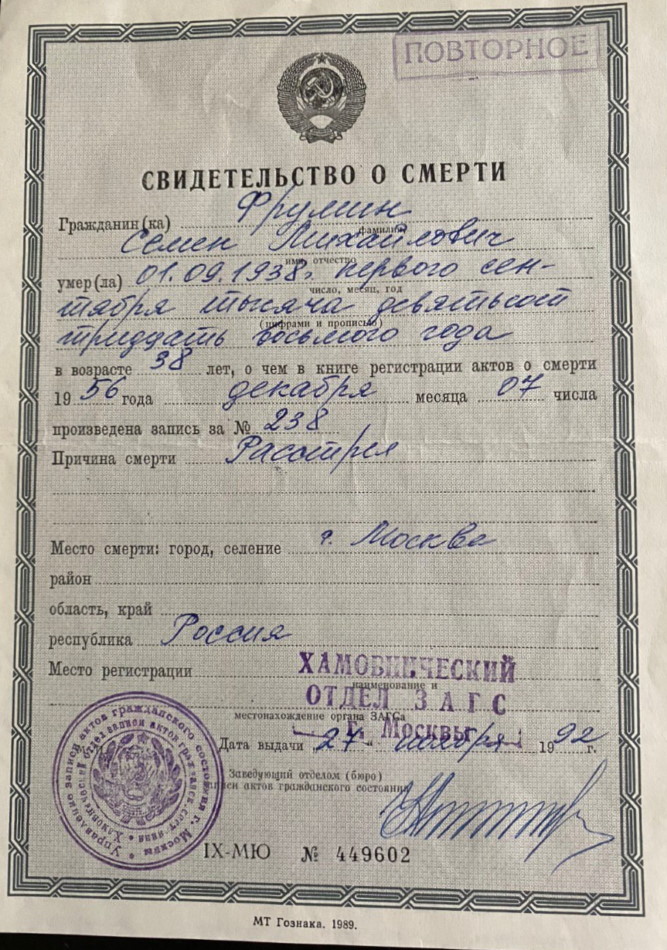 ПОВТОРНОЕ
СВИДЕТЕЛЬСТВО О СМЕРТИ
Гражданин(ка) Фрумин
фамилия
Семен Михайлович
имя, отчество
умер(ла) 01.09.1938г. первого сен-
число, месяц, год
тября тысяча девятьсот
(цифрами и прописью)
тридцать восьмого года
в возрасте 38 лет, о чем в книге регистрации актов о смерти
19 56 года декабря месяца 07 числа
произведена запись за № 238
Причина смерти Расстрел
Место смерти: город, селение г. Москва
район
область, край
республика Россия
Место регистрации ХАМОВНИЧЕСКИЙ
наименование и
ОТДЕЛ ЗАГС
местонахождение органа ЗАГСа
г. Москвы
Дата выдачи 27 ноября 1992 г.
Заведующий отделом (бюро)
записи актов гражданского состояния
Управление записи актов гражданского состояния г. Москвы
IX-МЮ № 449602
МТ Гознака. 1989.